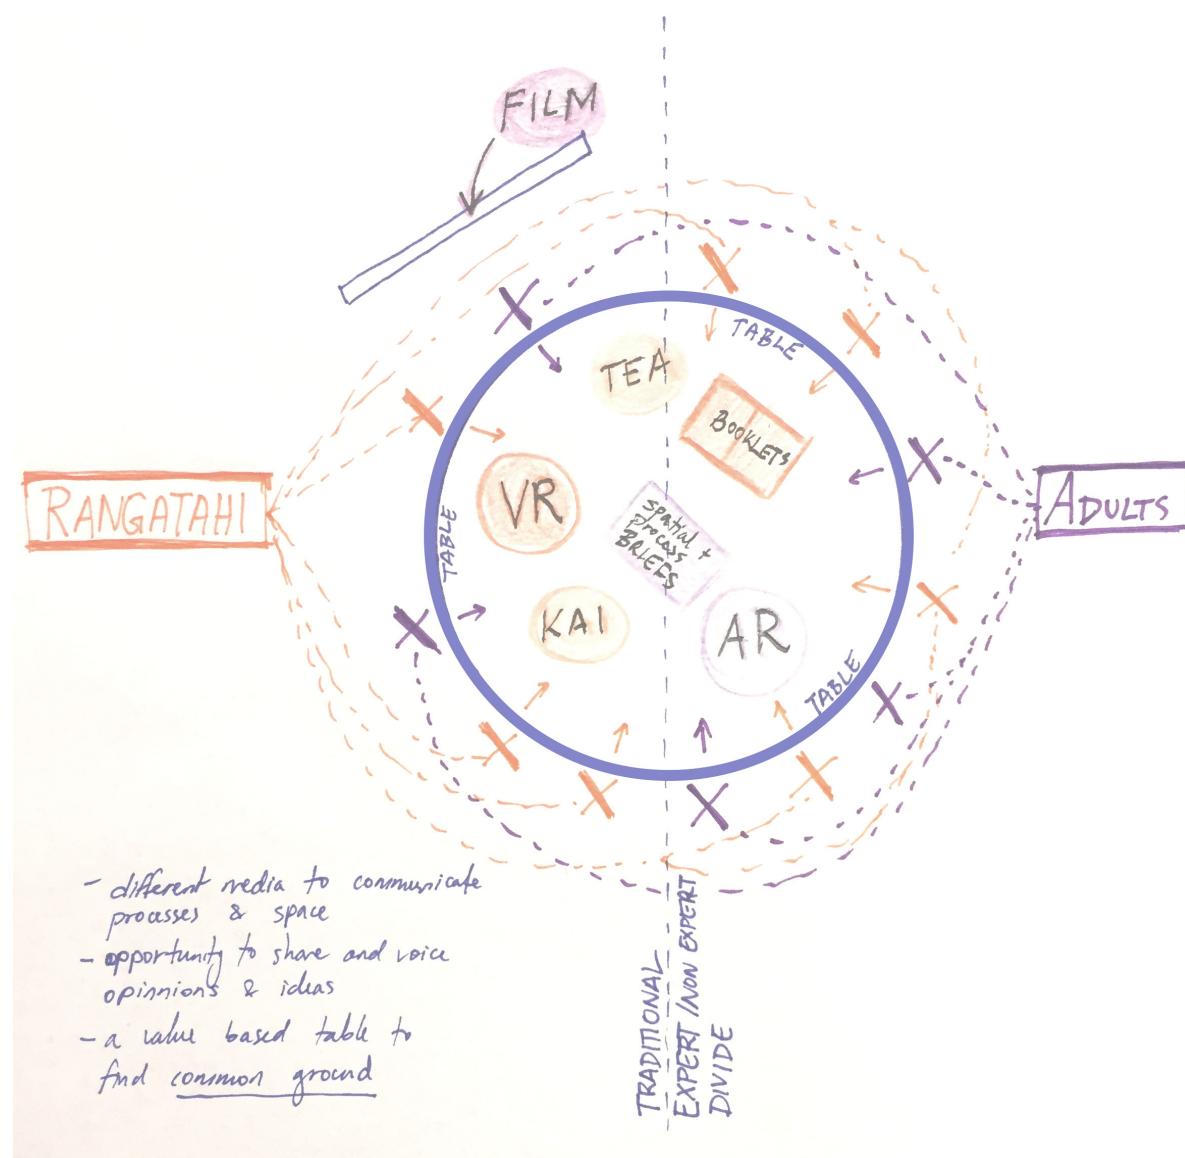 FILM
TABLE
TEA
BOOKLETS
VR
RANGATAHI
ADULTS
TABLE
Spatial +
process
BRIEFS
KAI
AR
TABLE
- different media to communicate
processes & space
- opportunity to share and voice
opinnions & ideas
- a value based table to
find common ground
TRADITIONAL
EXPERT/NON EXPERT
DIVIDE